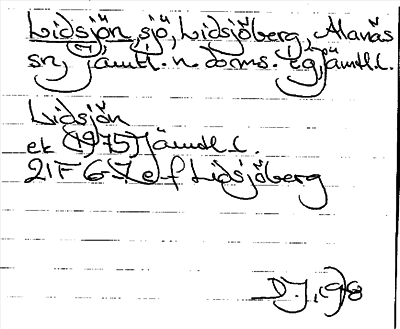 Lidsjön, sjö, Lidsjöberg, Alanäs
sn, Jämtl. n. doms. tg, Jämtl. l.
Lidsjön
ek (1975) Jämtl l.
21F 6-7 e-f Lidsjöberg
DJ, 198